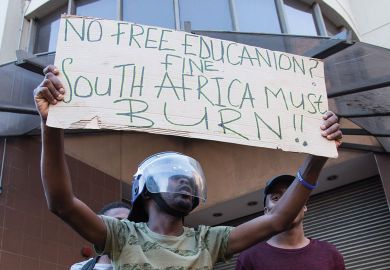 NO FREE EDUCANION?
FINE
SOUTH AFRICA MUST
BURN!!